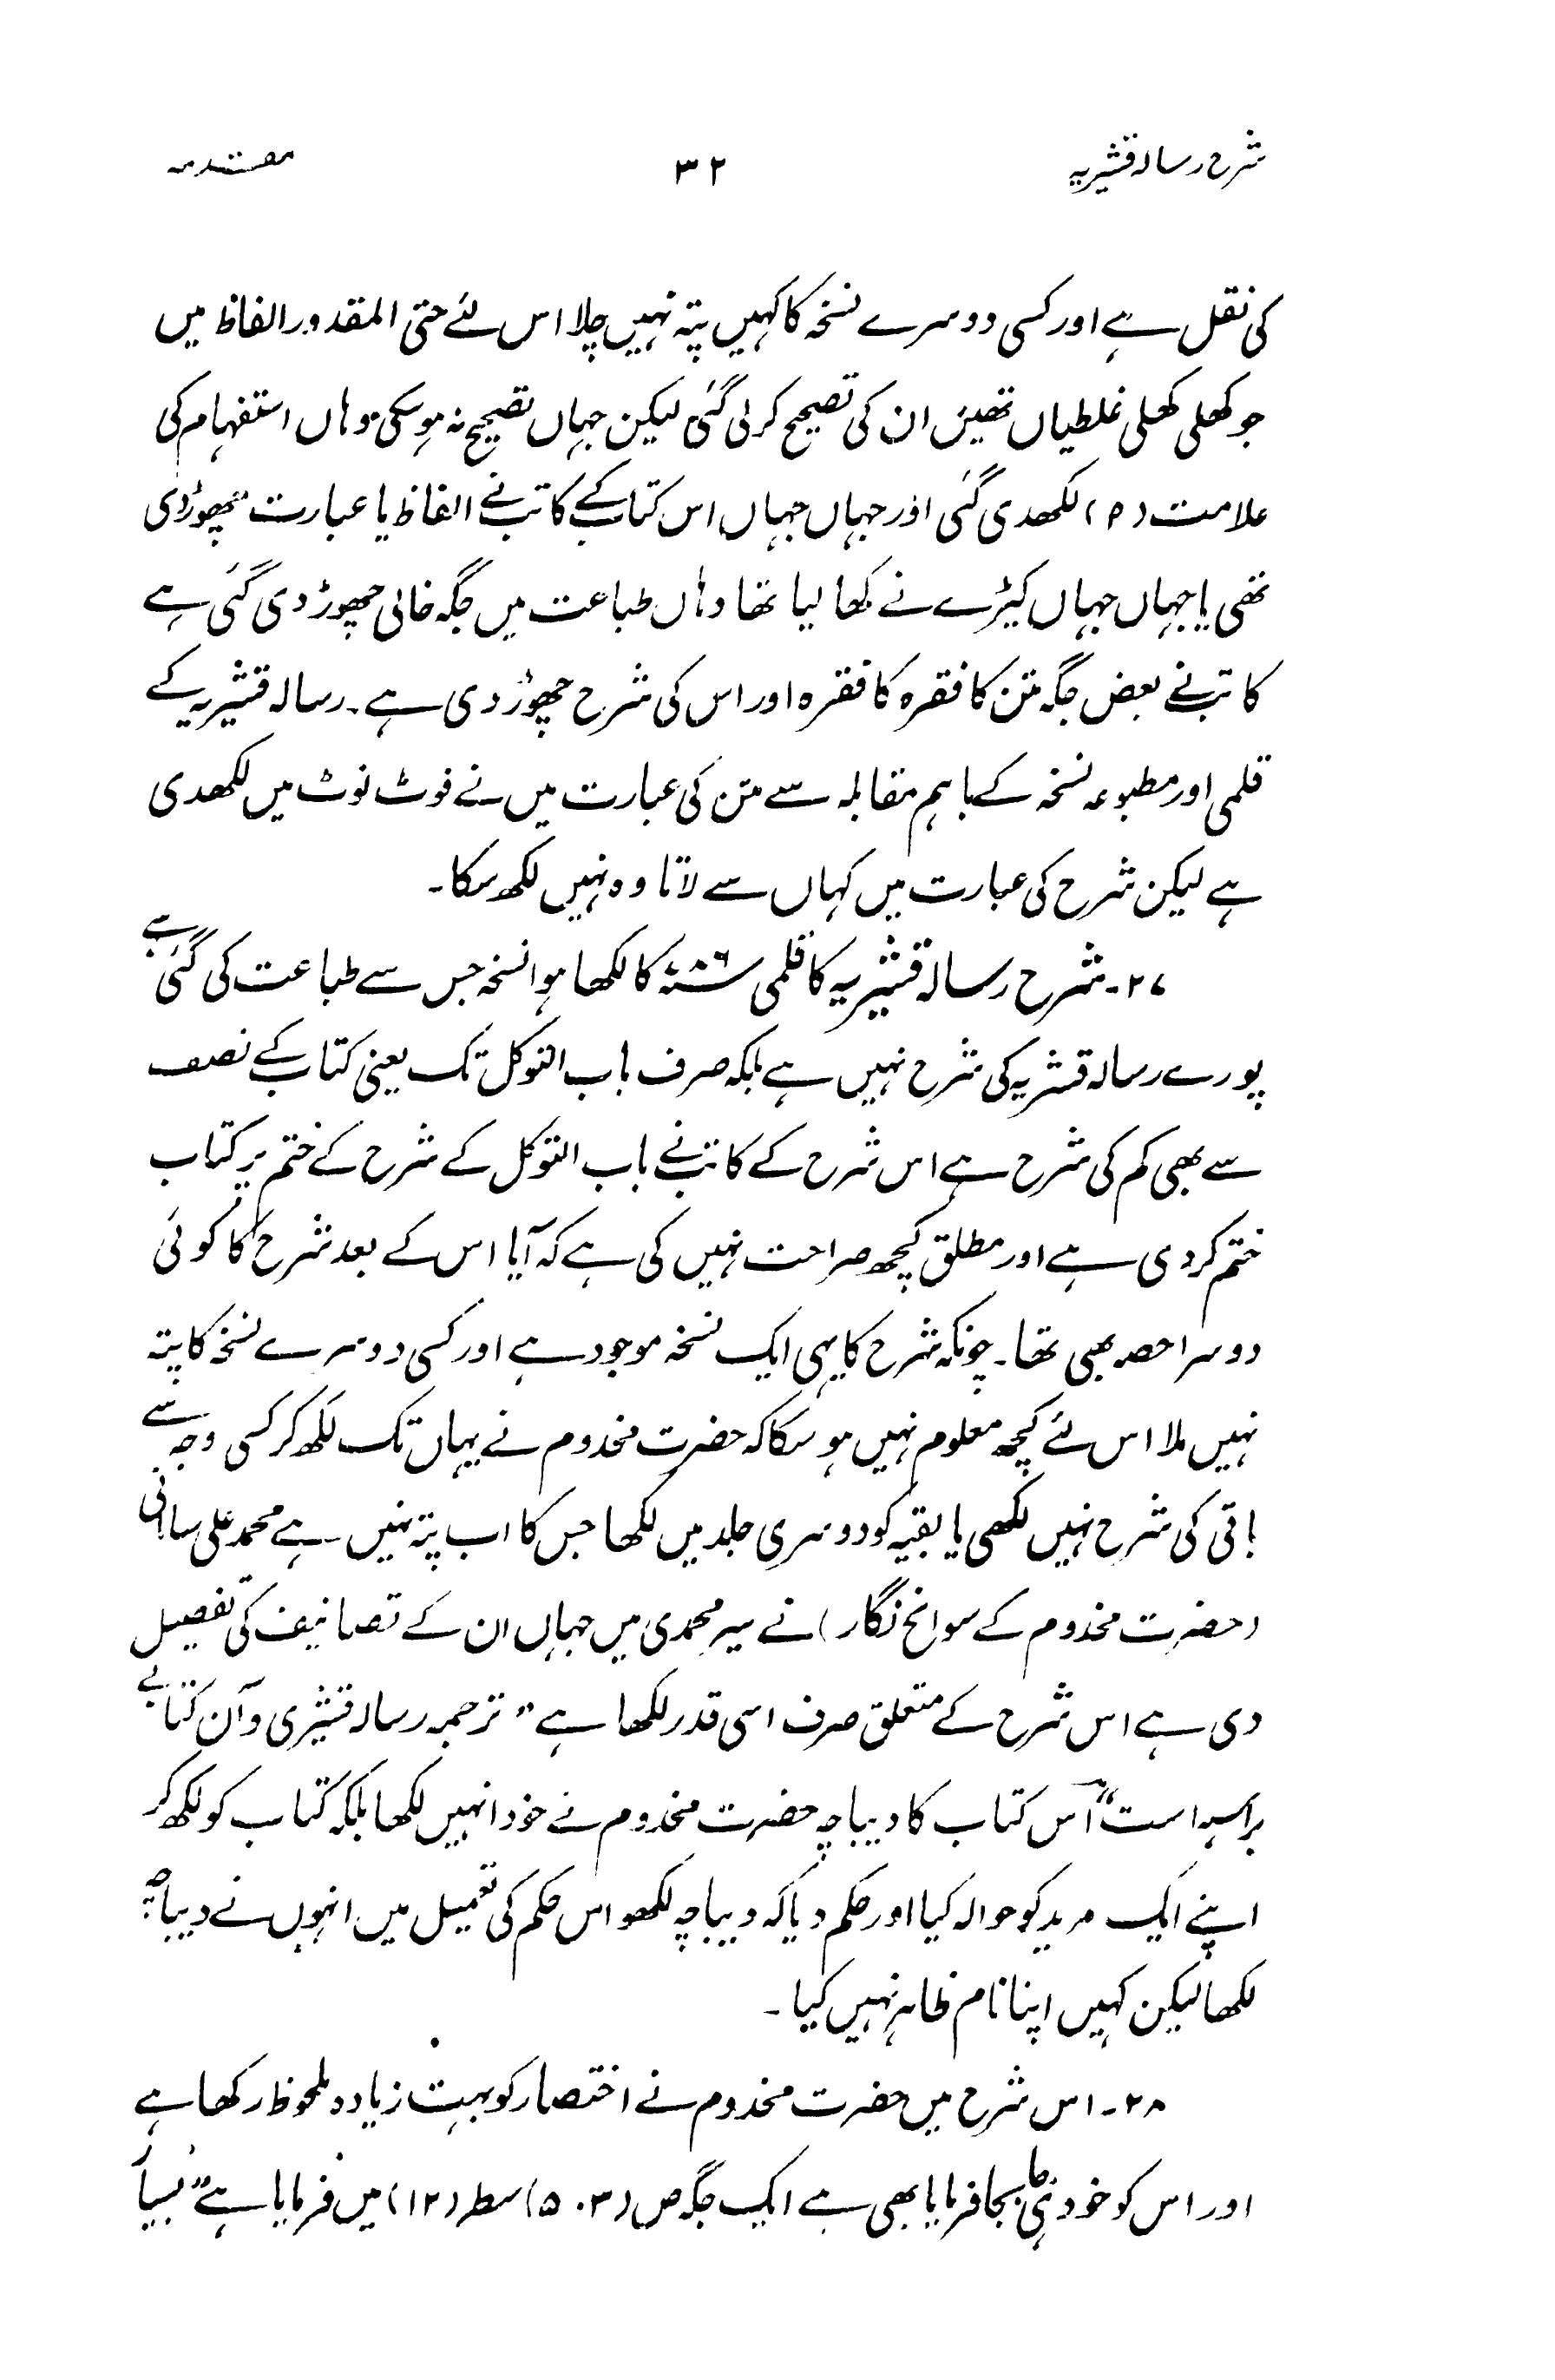 شرح رسالہ قشیریہ ۳۲ مقدمہ
کی نقل ہے اور کسی دوسرے نسخہ کا کہیں پتہ نہیں چلا اس لئے حتی المقدور الفاظ میں
جو کھلی کھلی غلطیاں تھیں ان کی تصحیح کرلی گئی لیکن جہاں تصحیح نہ ہوسکی وہاں استفہام کی
علامت (؟) لکھدی گئی اور جہاں جہاں اس کتاب کے کاتب نے الفاظ یا عبارت چھوڑ دی
تھی یا جہاں جہاں کیڑے نے کھا لیا تھا وہاں طباعت میں جگہ خالی چھوڑ دی گئی ہے
کاتب نے بعض جگہ متن کا فقرہ کا فقرہ اور اس کی شرح چھوڑ دی ہے۔ رسالہ قشیریہ کے
قلمی اور مطبوعہ نسخہ کے باہم مقابلہ سے متن کی عبارت میں نے فوٹ نوٹ میں لکھدی
ہے لیکن شرح کی عبارت میں کہاں سے لاتا وہ نہیں لکھ سکا۔
۲۷۔ شرح رسالہ قشیریہ کا قلمی کا لکھا ہوا نسخہ جس سے طباعت کی گئی ہے
پورے رسالہ قشریہ کی شرح نہیں ہے بلکہ صرف باب التوکل تک یعنی کتاب کے نصف
سے بھی کم کی شرح ہے اس شرح کے کاتب نے باب التوکل کے شرح کے ختم پر کتاب
ختم کردی ہے اور مطلق کچھ صراحت نہیں کی ہے کہ آیا اس کے بعد شرح کا کوئی
دوسرا حصہ بھی تھا۔ چونکہ شرح کا یہی ایک نسخہ موجود ہے اور کسی دوسرے نسخہ کا پتہ
نہیں ملا اس لئے کچھ معلوم نہیں ہو سکا کہ حضرت مخدوم نے یہاں تک لکھ کر کسی وجہ سے
باقی کی شرح نہیں لکھی یا بقیہ کو دوسری جلد میں لکھا جس کا اب پتہ نہیں ہے محمد علی سامانی
(حضرت مخدوم کے سوانح نگار) نے سیر محمدی میں جہاں ان کے تصانیف کی تفصیل
دی ہے اس شرح کے متعلق صرف اسی قدر لکھا ہے "ترجمہ رسالہ قشیری وآن کتابے
براسہ است" اس کتاب کا دیباچہ حضرت مخدوم نے خود انہیں لکھا بلکہ کتاب کو لکھ کر
اپنے ایک مرید کو حوالہ کیا اور حکم دیا کہ دیباچہ لکھو اس حکم کی تعمیل میں انہوں نے دیباچہ
لکھا لیکن کہیں اپنا نام ظاہر نہیں کیا۔
۲۸۔ اس شرح میں حضرت مخدوم نے اختصار کو بہت زیادہ ملحوظ رکھا ہے
اور اس کو خود ہی جا بجا فرمایا بھی ہے ایک جگہ ص (۵۰۳) سطر (۱۲) میں فرمایا ہے "بسیار